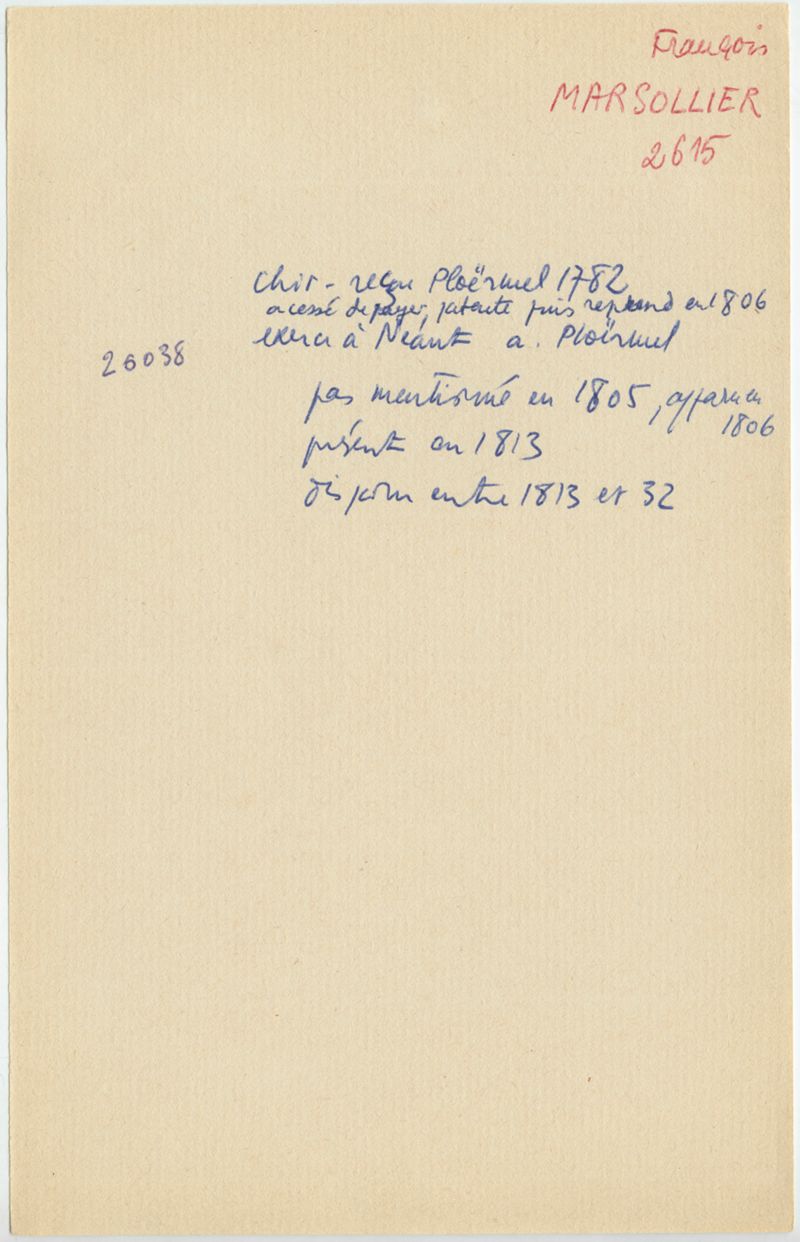 François
MARSOLLIER
2615
Chir - reçu Ploërmel 1782
a cessé de payer, patente puis reprend en 1806
exerce à Néant a. Ploërmel
26038
pas mentionné en 1805, apparu en
1806
présent en 1813
disparu entre 1813 et 32